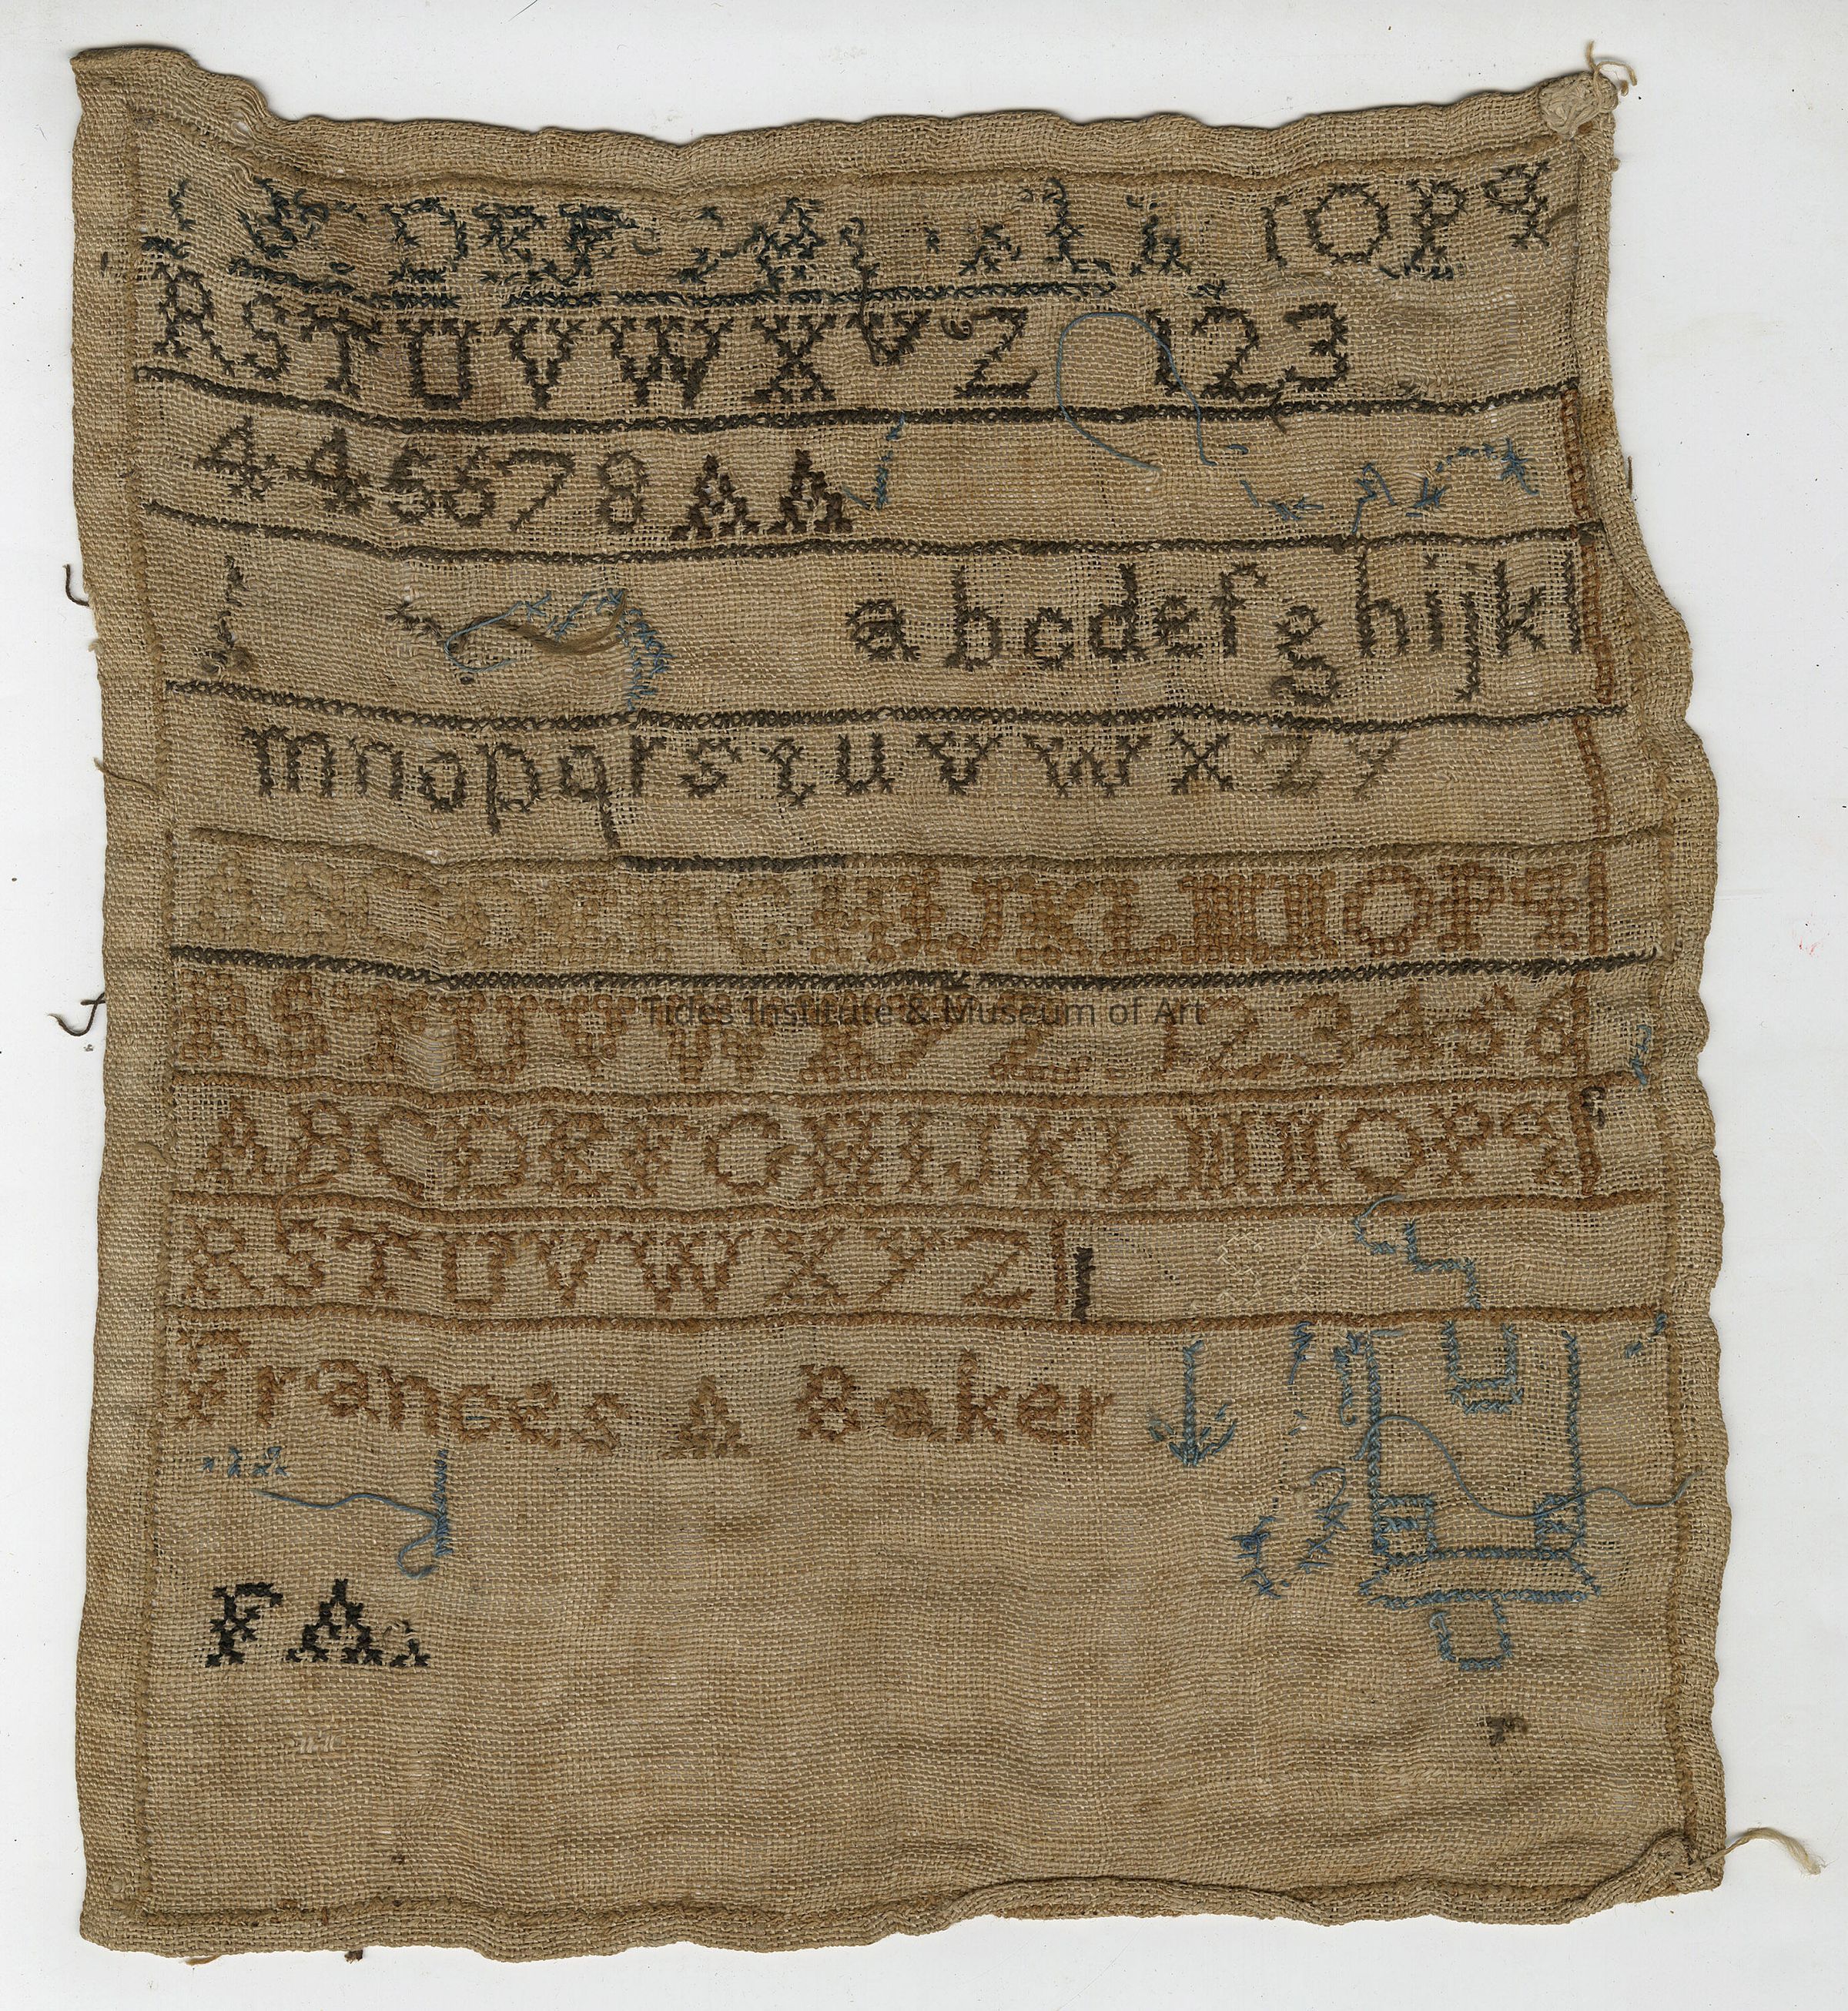 D E F L O P q
R S T U V W X Z 1 2 3
4 4 5 6 7 8 A A
a b c d e f g h i j k l
m n o p q r s t u v w x z y
G H I J K L M N O P q
R S T U V W X Y Z 1 2 3 4 5 6
A B C D E F G H I J K L M N O P q
R S T U V W X Y Z
Frances A Baker
F A
Tides Institute & Museum of Art